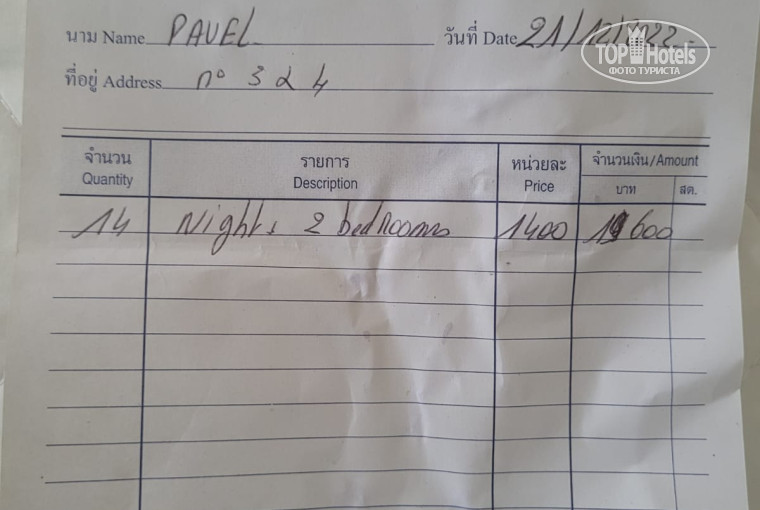 นาม Name PAVEL วันที่ Date 21/12/2022
TOP Hotels
ФОТО ТУРИСТА
ที่อยู่ Address n° 3 2 4
จำนวน รายการ หน่วยละ จำนวนเงิน/Amount
Quantity Description Price บาท สต.
14 Nights 2 bedrooms 1400 19600